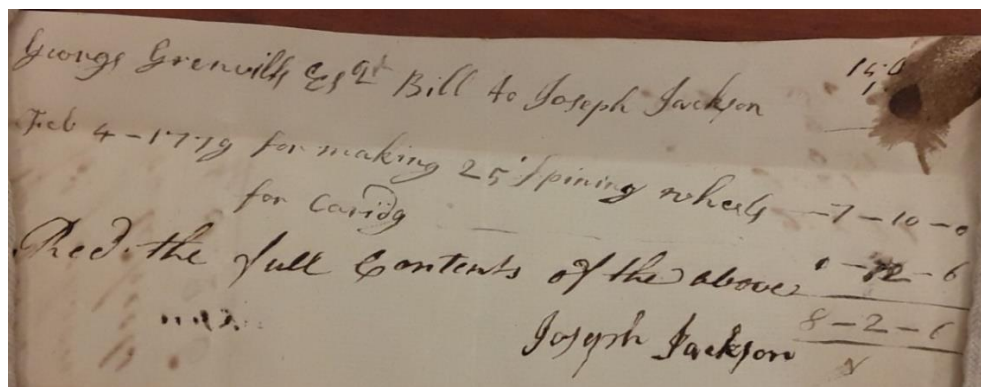 George Grenvills Esqr Bill to Joseph Jackson
Feb 4 - 1779 for making 25 Spining wheels - 7 - 10 - 0
for Caridg 0 - 12 - 6
Recd. the full Contents of the above
8 - 2 - 6
Joseph Jackson